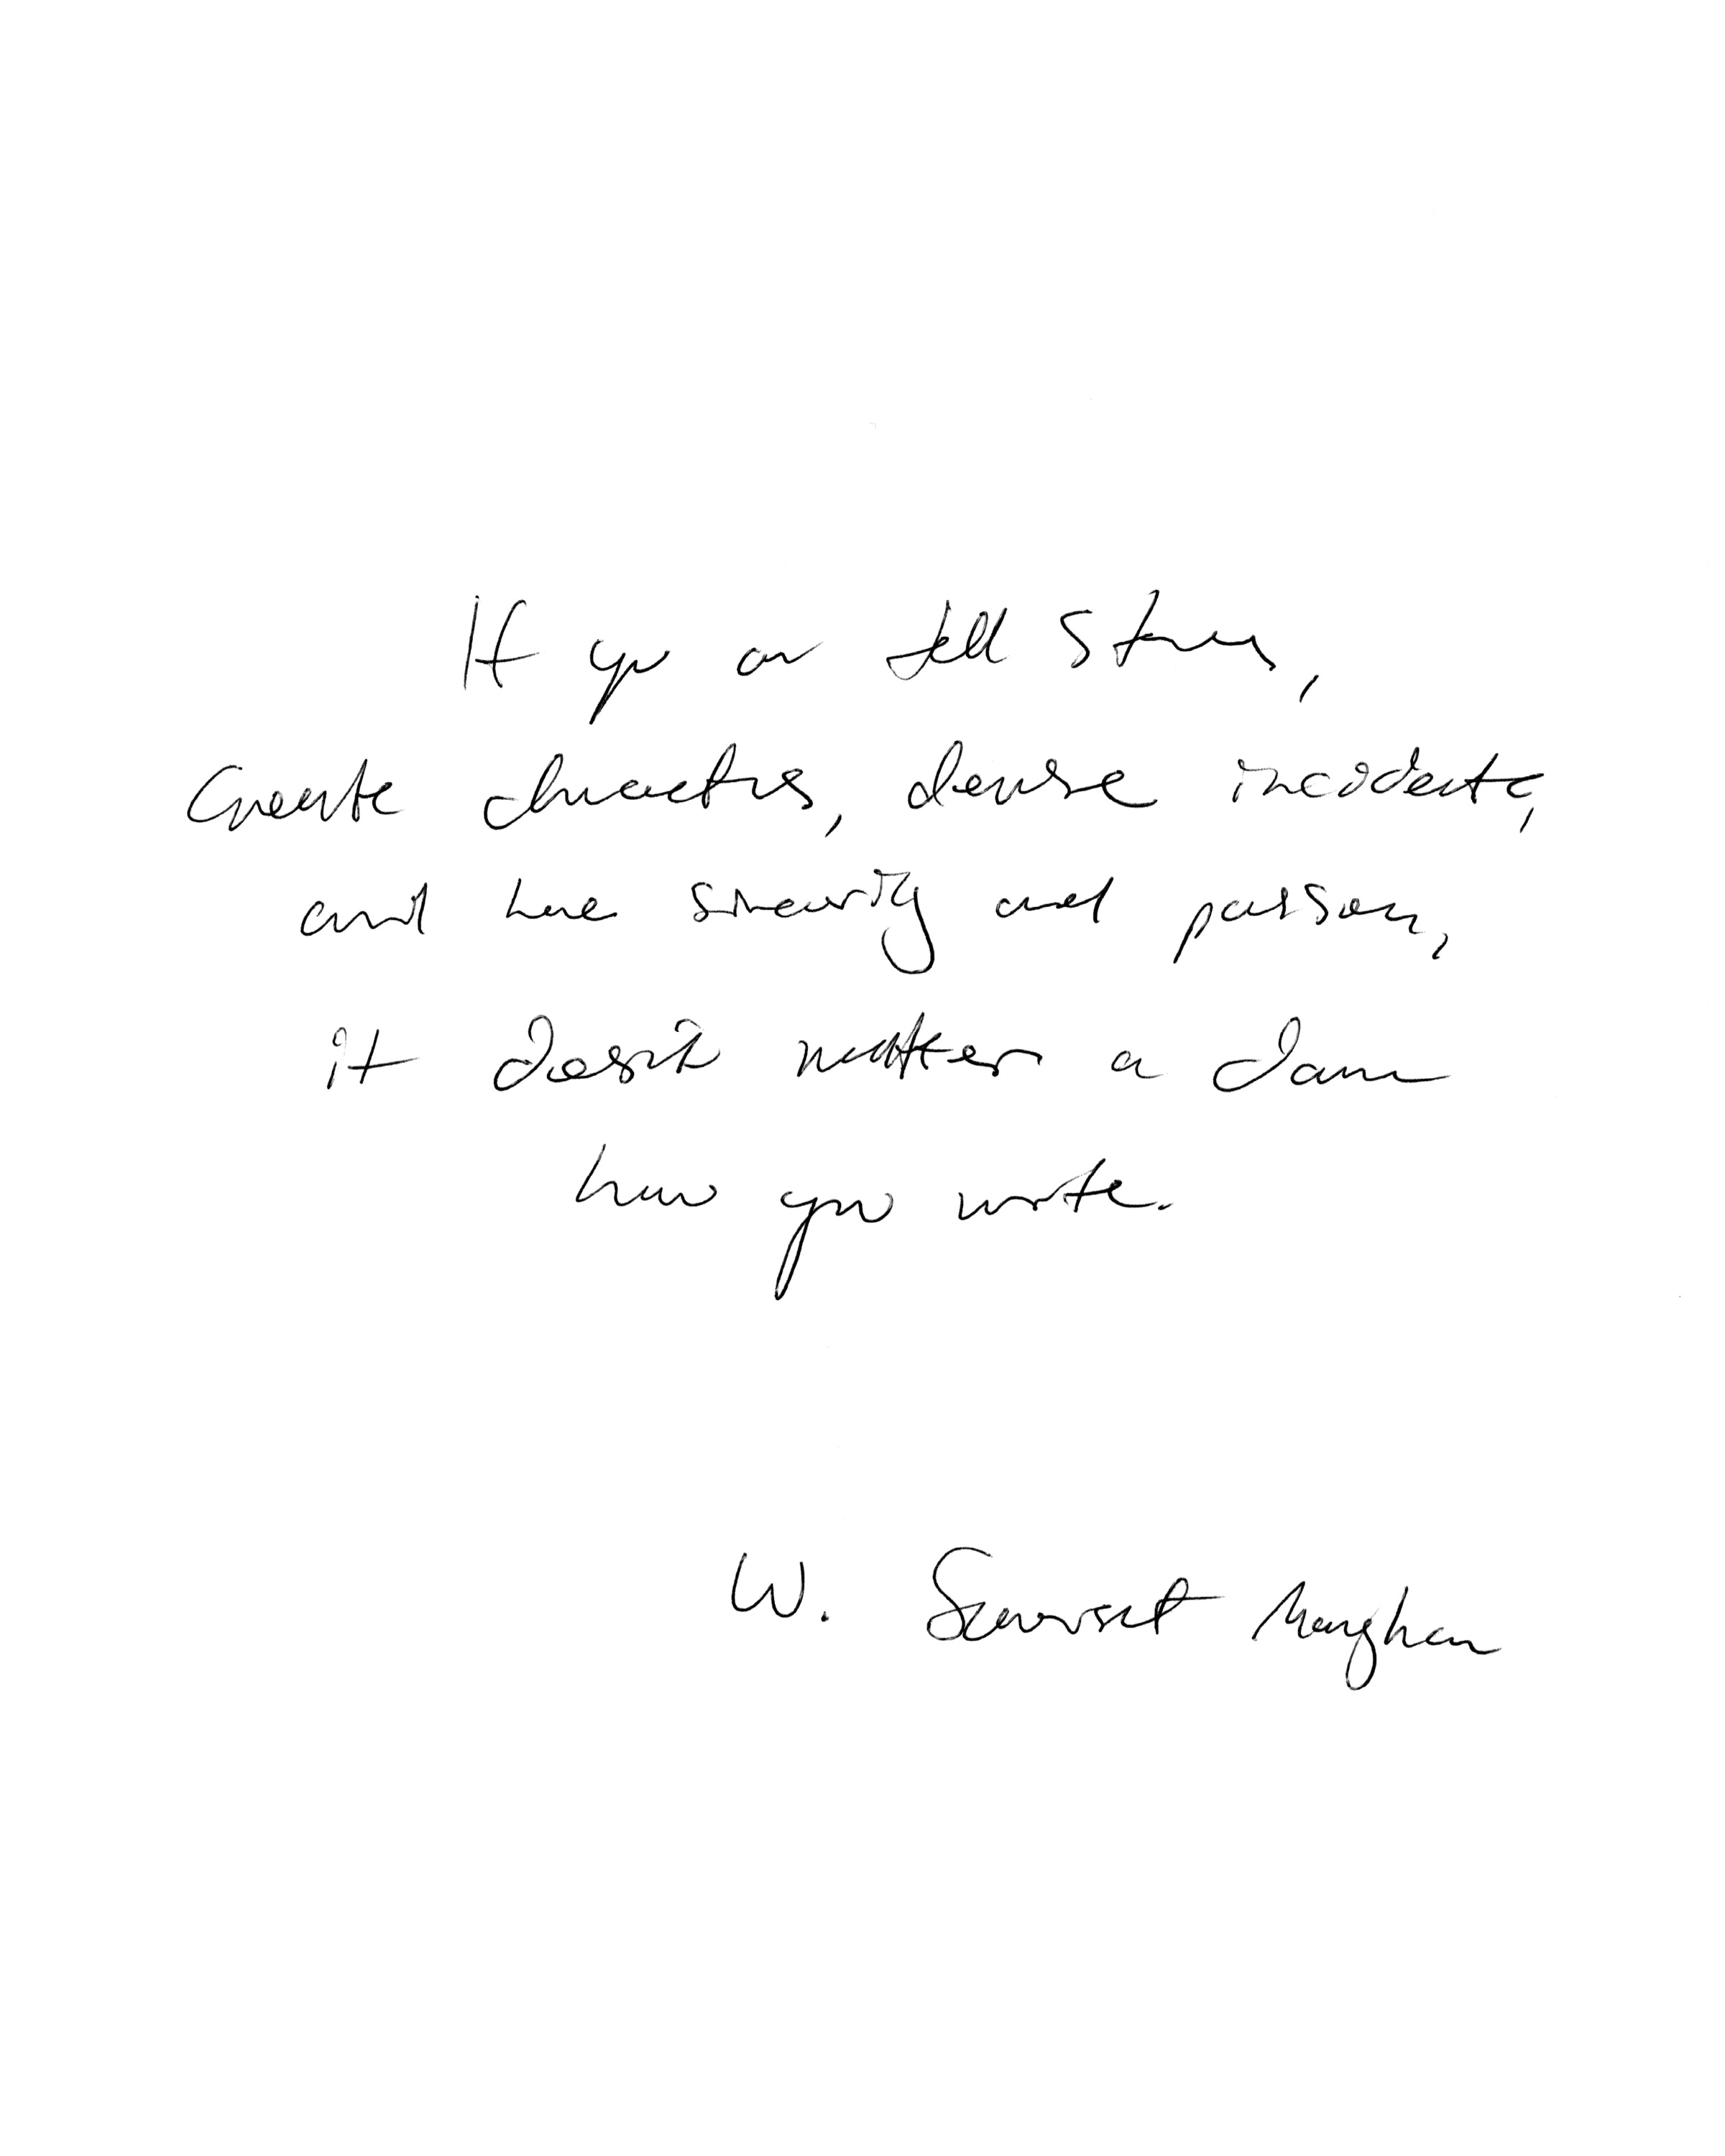 If you can tell stories,
Create characters, devise incidents,
and have sincerity and passion,
it doesn't matter a damn
how you write.
W. Somerset Maugham